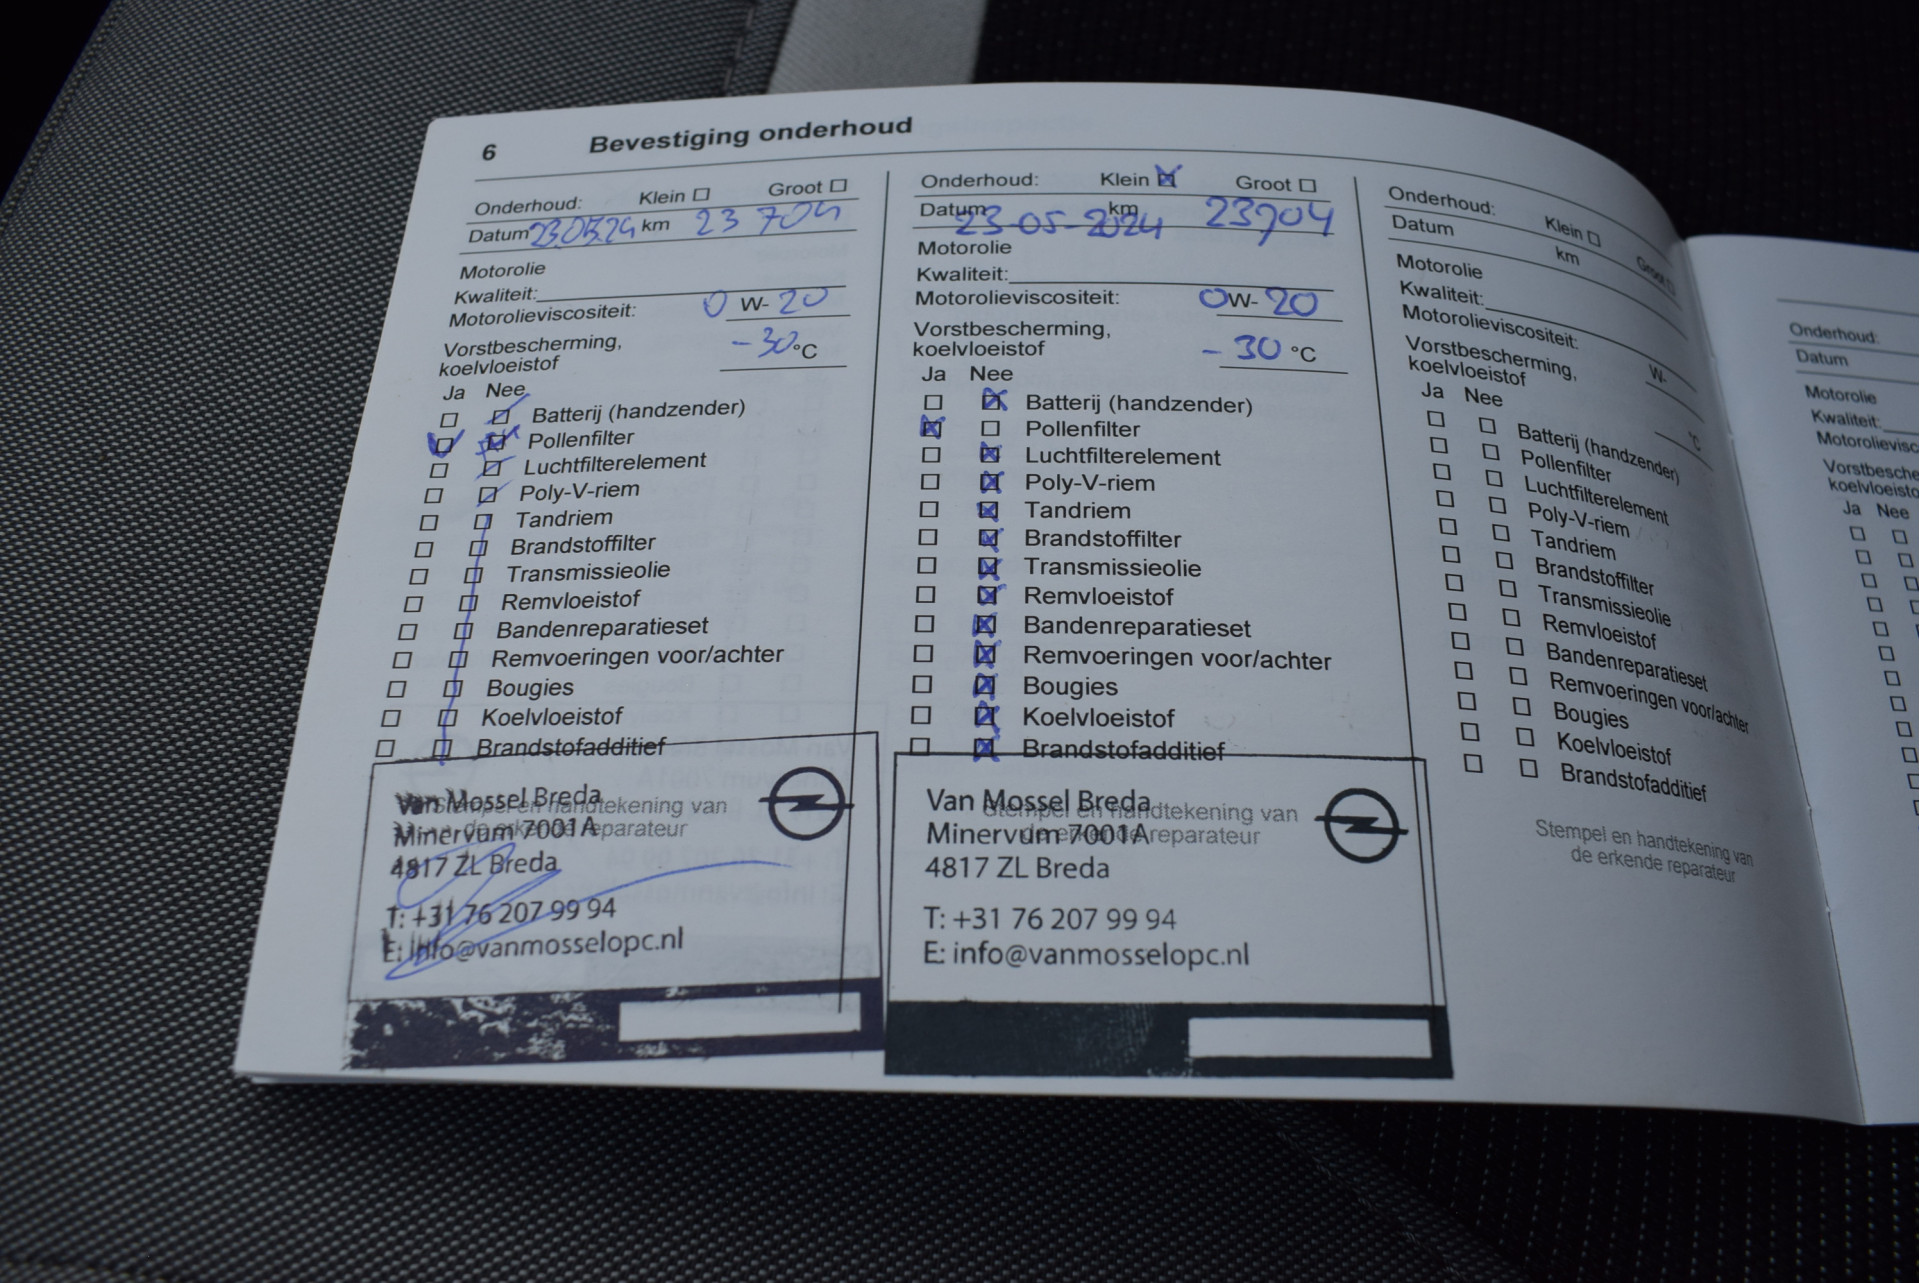 6 Bevestiging onderhoud
Onderhoud: Klein Groot
Datum 23.05.24 km 23 704
Motorolie
Kwaliteit:
Motorolieviscositeit: 0 W- 20
Vorstbescherming,
koelvloeistof -30 °C
Ja Nee
Batterij (handzender)
Pollenfilter
Luchtfilterelement
Poly-V-riem
Tandriem
Brandstoffilter
Transmissieolie
Remvloeistof
Bandenreparatieset
Remvoeringen voor/achter
Bougies
Koelvloeistof
Brandstofadditief
Stempel en handtekening van
de erkende reparateur
Van Mossel Breda
Minervum 7001A
4817 ZL Breda
T: +31 76 207 99 94
E: info@vanmosselopc.nl
Onderhoud: Klein Groot
Datum 23-05-2024 km 23704
Motorolie
Kwaliteit:
Motorolieviscositeit: 0W- 20
Vorstbescherming,
koelvloeistof -30 °C
Ja Nee
Batterij (handzender)
Pollenfilter
Luchtfilterelement
Poly-V-riem
Tandriem
Brandstoffilter
Transmissieolie
Remvloeistof
Bandenreparatieset
Remvoeringen voor/achter
Bougies
Koelvloeistof
Brandstofadditief
Stempel en handtekening van
de erkende reparateur
Van Mossel Breda
Minervum 7001A
4817 ZL Breda
T: +31 76 207 99 94
E: info@vanmosselopc.nl
Onderhoud: Klein Groot
Datum km
Motorolie
Kwaliteit:
Motorolieviscositeit: W-
Vorstbescherming,
koelvloeistof °C
Ja Nee
Batterij (handzender)
Pollenfilter
Luchtfilterelement
Poly-V-riem
Tandriem
Brandstoffilter
Transmissieolie
Remvloeistof
Bandenreparatieset
Remvoeringen voor/achter
Bougies
Koelvloeistof
Brandstofadditief
Stempel en handtekening van
de erkende reparateur
Onderhoud:
Datum
Motorolie
Kwaliteit:
Motorolievisc
Vorstbescherming
koelvloeisto
Ja Nee